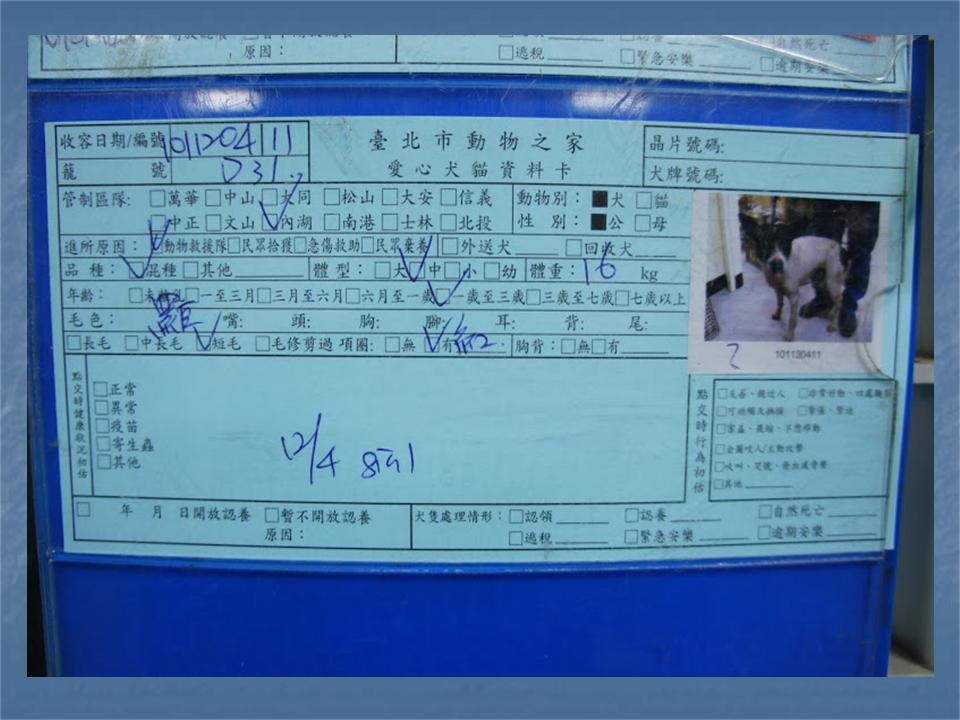 原因：
□逃稅 □緊急安樂 □逾期安樂
自然死亡
臺北市動物之家
愛心犬貓資料卡
收容日期/編號 101204 11
籠號 D31
晶片號碼:
犬牌號碼:
管制區隊: □萬華□中山□大同□松山□大安□信義
□中正□文山□內湖□南港□士林□北投
動物別：■犬 □貓
性 別：■公 □母
進所原因：□動物救援隊□民眾拾獲□急傷救助□民眾棄養□外送犬 □回收犬
品種：□混種□其他 體型：□大□中□小□幼 體重：16 kg
年齡：□未離乳□一至三月□三月至六月□六月至一歲□一歲至三歲□三歲至七歲□七歲以上
毛色： 嘴: 頭: 胸: 腳: 耳: 背: 尾:
□長毛 □中長毛 □短毛 □毛修剪過 項圈：□無 □有紅 胸背：□無□有
101120411
點交時健康狀況初估
□正常
□異常
□疫苗
□寄生蟲
□其他
12/4
點交時行為初估
□友善、親近人 □非常好動、四處
□可碰觸及撫摸 □緊張、警迫
□害羞、畏縮、不想移動
□企圖咬人/主動攻擊
□吠叫、哭號、發出威脅聲
□其他
□ 年 月 日開放認養 □暫不開放認養
原因：
犬隻處理情形：□認領 □認養 □自然死亡
□逃稅 □緊急安樂 □逾期安樂